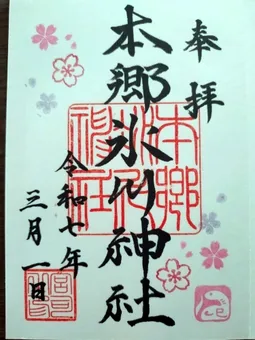 奉拝
本郷氷川神社
令和七年
三月一日
本郷
氷川
神社